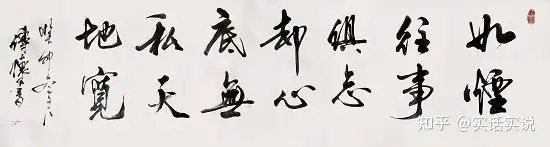 如煙
往事
俱忘
却心
底無
私天
地寬
癸卯
知乎 @实话实说